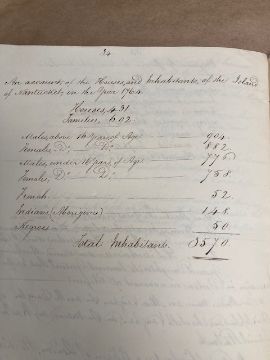 34
An account, of the Houses, and Inhabitants, of the Island
of Nantucket, in the Year 1764
Houses, 431
Families, 602
Males above 16 years of Age 904
Females, Do. Do. 882
Males, under 16 years of Age 776
Females, Do. Do. 758
French 52
Indians (Aborigines) 148
Negroes 50
Total Inhabitants 3570